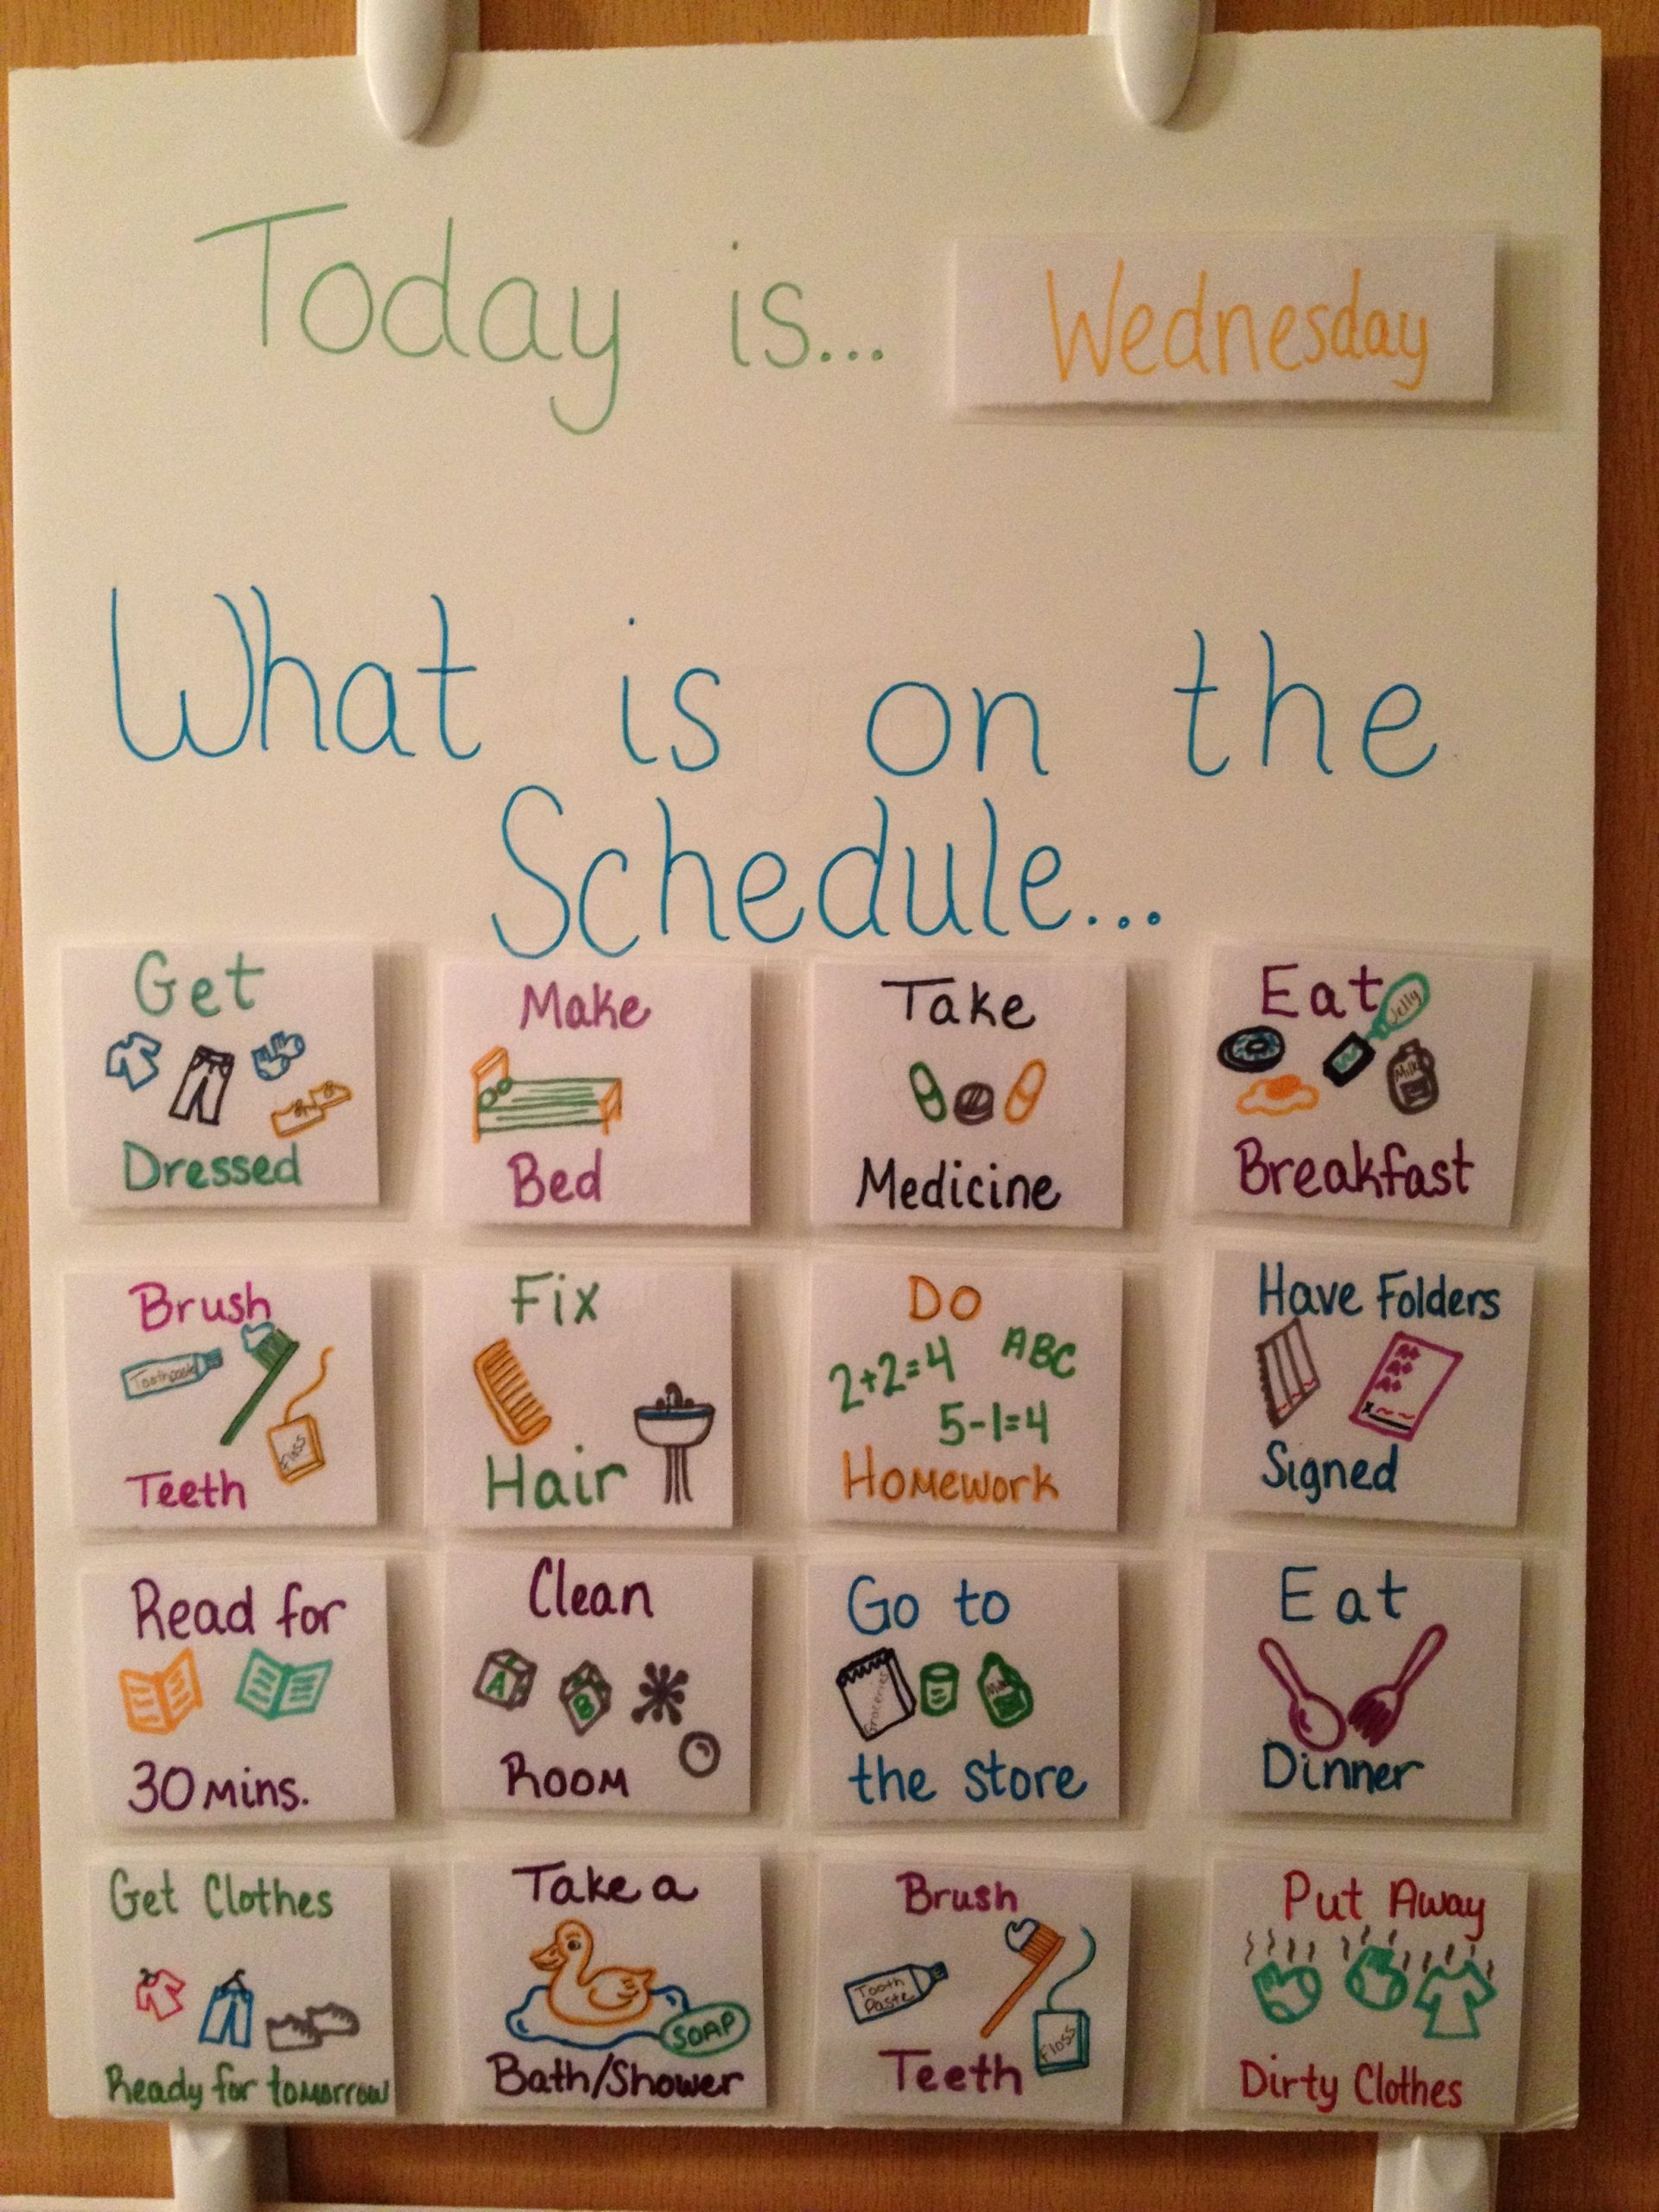 Today is... Wednesday
What is on the
Schedule...
Get
Dressed
Make
Bed
Take
Medicine
Eat
Jelly
Milk
Breakfast
Brush
Toothpaste
Floss
Teeth
Fix
Hair
Do
2+2=4 ABC
5-1=4
Homework
Have Folders
A+
A+
A+
x
Signed
Read for
30 mins.
Clean
A
B
Room
Go to
Groceries
Milk
the store
Eat
Dinner
Get Clothes
Ready for tomorrow
Take a
SOAP
Bath/Shower
Brush
Tooth
Paste
Floss
Teeth
Put Away
Dirty Clothes